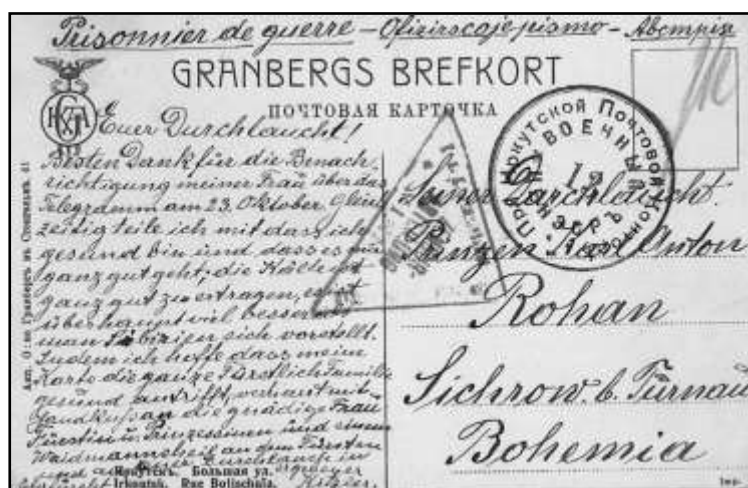 Prisonnier de guerre – Ofizirscoje pismo – Австрия
GRANBERGS BREFKORT
ПОЧТОВАЯ КАРТОЧКА
Euer Durchlaucht!
Besten Dank für die Benach-
richtigung meiner Frau über das
Telegramm am 23. Oktober. Gleich
zeitig teile ich mit dass ich
gesund bin und dass es mir
ganz gut geht; die Kälte ist
ganz gut zu ertragen, es ist
überhaupt viel besser als
man Sibirien sich vorstellt.
Indem ich hoffe dass meine
Karte die ganze Fürstlich Familie
gesund antrifft, verharrt mit
Handkuß an die gnädige Frau
Fürstin u. Prinzessinen und einem
Waidmannsheil an den Fürsten
und
Иркутскъ. Большая ул.
Irkoutsk. Rue Bolischaïa.
Иркутской Почтовой
ВОЕЧНЫ
Seiner Durchlaucht
Prinzen Karl Anton
Rohan
Sichrow. b. Turnau
Bohemia